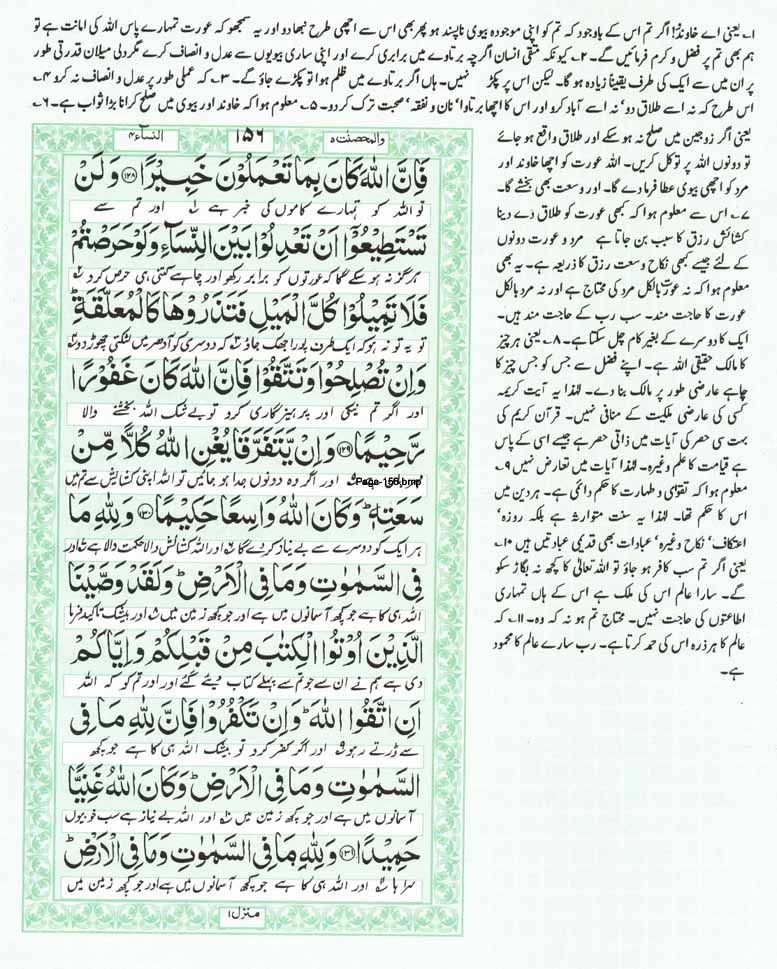 ۱۔ یعنی اے خاوندو! اگر تم اس کے باوجود کہ تم کو اپنی موجودہ بیوی ناپسند ہو پھر بھی اس سے اچھی طرح نبھا دو اور یہ سمجھو کہ عورت تمہارے پاس اللہ کی امانت ہے تو
ہم بھی تم پر فضل و کرم فرمائیں گے۔ ۲۔ کیونکہ متقی انسان اگرچہ برتاوے میں برابری کرے اور اپنی ساری بیویوں سے عدل و انصاف کرے مگر دلی میلان قدرتی طور
پر ان میں سے ایک کی طرف یقیناً زیادہ ہو گا۔ لیکن اس پر پکڑ نہیں۔ ہاں اگر برتاوے میں ظلم ہوا تو پکڑے جاؤ گے۔ ۳۔ کہ عملی طور پر عدل و انصاف نہ کرو ۴۔
اس طرح کہ نہ اسے طلاق دو' نہ اسے آباد کرو اور اس کا اچھا برتاوا' نان و نفقہ' صحبت ترک کر دو۔ ۵۔ معلوم ہوا کہ خاوند اور بیوی میں صلح کرانا بڑا ثواب ہے۔ ۶۔
یعنی اگر زوجین میں صلح نہ ہو سکے اور طلاق واقع ہو جائے
تو دونوں اللہ پر توکل کریں۔ اللہ عورت کو اچھا خاوند اور
مرد کو اچھی بیوی عطا فرما دے گا۔ اور وسعت بھی بخشے گا۔
۷۔ اس سے معلوم ہوا کہ کبھی عورت کو طلاق دے دینا
کشائش رزق کا سبب بن جاتا ہے مرد و عورت دونوں
کے لئے جیسے کبھی نکاح وسعت رزق کا ذریعہ ہے۔ یہ بھی
معلوم ہوا کہ نہ عورت بالکل مرد کی محتاج ہے اور نہ مرد بالکل
عورت کا حاجت مند۔ سب رب کے حاجت مند ہیں۔
ایک کا دوسرے کے بغیر کام چل سکتا ہے۔ ۸۔ یعنی ہر چیز
کا مالک حقیقی اللہ ہے۔ اپنے فضل سے جس کو جس چیز کا
چاہے عارضی طور پر مالک بنا دے۔ لہٰذا یہ آیت کریمہ
کسی کی عارضی ملکیت کے منافی نہیں۔ قرآن کریم کی
بہت سی حصر کی آیات میں ذاتی حصر ہے جیسے اسی کے پاس
ہے قیامت کا علم وغیرہ۔ لہٰذا آیات میں تعارض نہیں ۹۔
معلوم ہوا کہ تقویٰ و طہارت کا حکم دائمی ہے۔ ہر دین میں
اس کا حکم تھا۔ لہٰذا یہ سنت متوارثہ ہے بلکہ روزہ'
اعتکاف' نکاح وغیرہ' عبادات بھی قدیمی عبادتیں ہیں ۱۰۔
یعنی اگر تم سب کافر ہو جاؤ تو اللہ تعالیٰ کا کچھ نہ بگاڑ سکو
گے۔ سارا عالم اس کی ملک ہے اس کے ہاں تمہاری
اطاعتوں کی حاجت نہیں۔ محتاج تم ہو نہ کہ وہ۔ ۱۱۔ کہ
عالم کا ہر ذرہ اس کی حمد کرتا ہے۔ رب سارے عالم کا محمود
ہے۔
والمحصنٰت ۵ ۱۵۶ النسآء ۴
فَاِنَّ اللّٰهَ كَانَ بِمَا تَعْمَلُوْنَ خَبِيْرًا ﴿۱۲۸﴾ وَ لَنْ
تو اللہ کو تمہارے کاموں کی خبر ہے اور تم سے
تَسْتَطِيْعُوْۤا اَنْ تَعْدِلُوْا بَيْنَ النِّسَآءِ وَ لَوْ حَرَصْتُمْ
ہرگز نہ ہو سکے گا کہ عورتوں کو برابر رکھو اور چاہے کتنی ہی حرص کرو
فَلَا تَمِيْلُوْا كُلَّ الْمَيْلِ فَتَذَرُوْهَا كَالْمُعَلَّقَةِ ؕ
تو یہ تو نہ ہو کہ ایک طرف پورا جھک جاؤ کہ دوسری کو ادھر میں لٹکتی چھوڑ دو
وَ اِنْ تُصْلِحُوْا وَ تَتَّقُوْا فَاِنَّ اللّٰهَ كَانَ غَفُوْرًا
اور اگر تم نیکی اور پرہیزگاری کرو تو بے شک اللہ بخشنے والا
رَّحِيْمًا ﴿۱۲۹﴾ وَ اِنْ يَّتَفَرَّقَا يُغْنِ اللّٰهُ كُلًّا مِّنْ
اور اگر وہ دونوں جدا ہو جائیں تو اللہ اپنی کشائش سے تم میں
Page-156.bmp
سَعَتِهٖ ؕ وَ كَانَ اللّٰهُ وَاسِعًا حَكِيْمًا ﴿۱۳۰﴾ وَ لِلّٰهِ مَا
ہر ایک کو دوسرے سے بے نیاز کر دے گا اور اللہ کشائش والا حکمت والا ہے اور
فِى السَّمٰوٰتِ وَ مَا فِى الْاَرْضِ ؕ وَ لَقَدْ وَصَّيْنَا
اللہ ہی کا ہے جو کچھ آسمانوں میں ہے اور جو کچھ زمین میں اور بیشک تاکید فرما
الَّذِيْنَ اُوْتُوا الْكِتٰبَ مِنْ قَبْلِكُمْ وَ اِيَّاكُمْ
دی ہے ہم نے ان سے جو تم سے پہلے کتاب دیئے گئے اور تم کو کہ اللہ
اَنِ اتَّقُوا اللّٰهَ ؕ وَ اِنْ تَكْفُرُوْا فَاِنَّ لِلّٰهِ مَا فِى
سے ڈرتے رہو اور اگر کفر کرو تو بیشک اللہ ہی کا ہے جو کچھ
السَّمٰوٰتِ وَ مَا فِى الْاَرْضِ ؕ وَ كَانَ اللّٰهُ غَنِيًّا
آسمانوں میں ہے اور جو کچھ زمین میں اور اللہ بے نیاز ہے سب خوبیوں
حَمِيْدًا ﴿۱۳۱﴾ وَ لِلّٰهِ مَا فِى السَّمٰوٰتِ وَ مَا فِى الْاَرْضِ ؕ
سراہا اور اللہ ہی کا ہے جو کچھ آسمانوں میں ہے اور جو کچھ زمین میں
منزل ۱